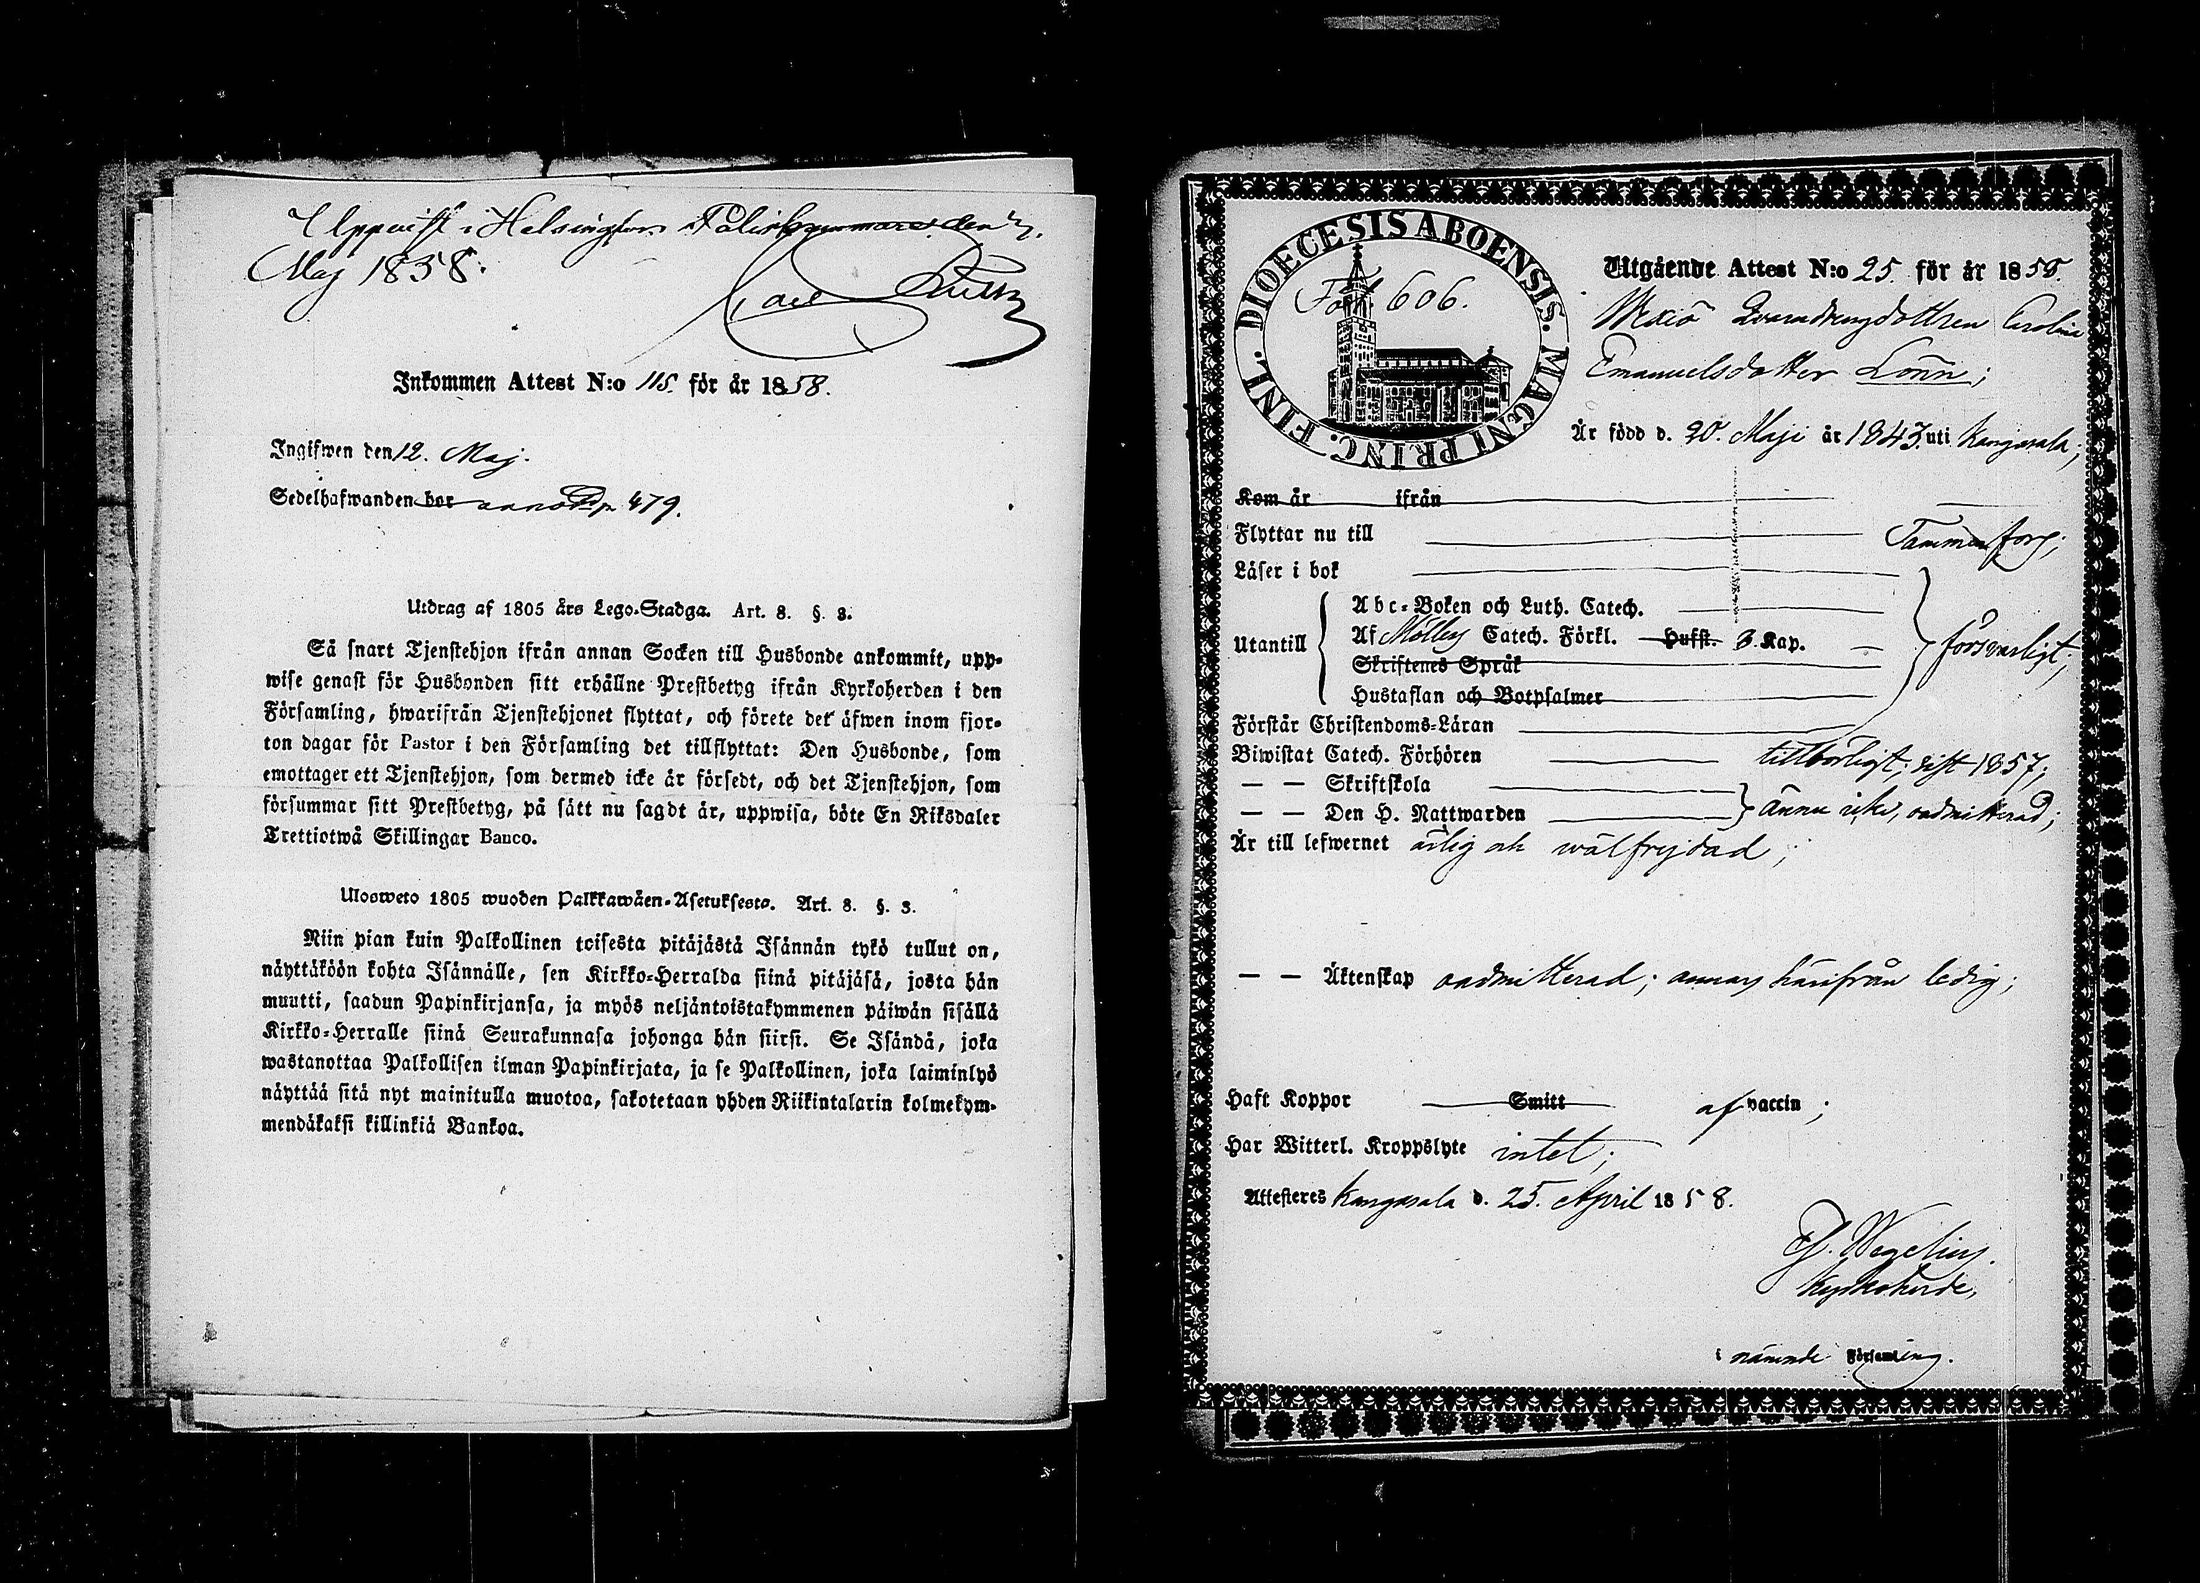 Uppvist i Helsingfors Poliskammare den 7.
Maj 1858.
Carl
Inkommen Attest N:o 115. för år 1858.
Ingifwen den 12. Maj.
Sedelhafwanden bor annotd p. 479.
Utdrag af 1805 års Lego-Stadga. Art. 8. §. 3.
Så snart Tjenstehjon ifrån annan Socken till Husbonde ankommit, upp-
wise genast för Husbonden sitt erhållne Prestbetyg ifrån Kyrkoherden i den
Församling, hwarifrån Tjenstehjonet flyttat, och förete det äfwen inom fjor-
ton dagar för Pastor i den Församling det tillflyttat: Den Husbonde, som
emottager ett Tjenstehjon, som dermed icke är försedt, och det Tjenstehjon, som
försummar sitt Prestbetyg, på sätt nu sagdt är, uppwisa, böte En Riksdaler
Trettiotwå Skillingar Banco.
Ulosweto 1805 wuoden Palkkawäen-Asetuksesta. Art. 8. §. 3.
Niin pian kuin Palkollinen toisesta pitäjästä Isännän tykö tullut on,
näyttäköön kohta Isännälle, sen Kirkko-Herralda siinä pitäjäsä, josta hän
muutti, saadun Papinkirjansa, ja myös neljäntoistakymmenen päiwän sisällä
Kirkko-Herralle siinä Seurakunnasa johonga hän siirsi. Se Isändä, joka
wastanottaa Palkollisen ilman Papinkirjata, ja se Palkollinen, joka laiminlyö
näyttää sitä nyt mainitulla muotoa, sakotetaan yhden Riikintalarin kolmekym-
mendäkaksi killinkiä Bankoa.
FINL. DIOECESIS ABOENSIS. MAGNI PRINC.
Fol. 606.
Utgående Attest N:o 25. för år 1858.
Wexiö Qvarndrengdottren Carolina
Emanuelsdotter Lönn;
Är född d. 20. Maji år 1843 uti Kangasala;
Kom år ifrån
Flyttar nu till Tammerfors;
Läser i bok
Utantill
Abc-Boken och Luth. Catech.
Af Möllers Catech. Förkl. Hufst. 3 Kap.
Skriftenes Språk
Hustaflan och Botpsalmer
försvarligt;
Förstår Christendoms-Läran
Biwistat Catech. Förhören tillbörligt, sist 1857;
— — Skriftskola
— — Den H. Nattwarden ännu icke, oadmitterad;
Är till lefwernet ärlig och wälfrejdad;
— — Äktenskap oadmitterad; annars härifrån ledig;
Haft Koppor Smitt af vaccin;
Har Witterl. Kroppslyte intet;
Attesteres Kangasala d. 25. April 1858.
Wegelius.
Kyrkoherde,
i nämnde Församling.